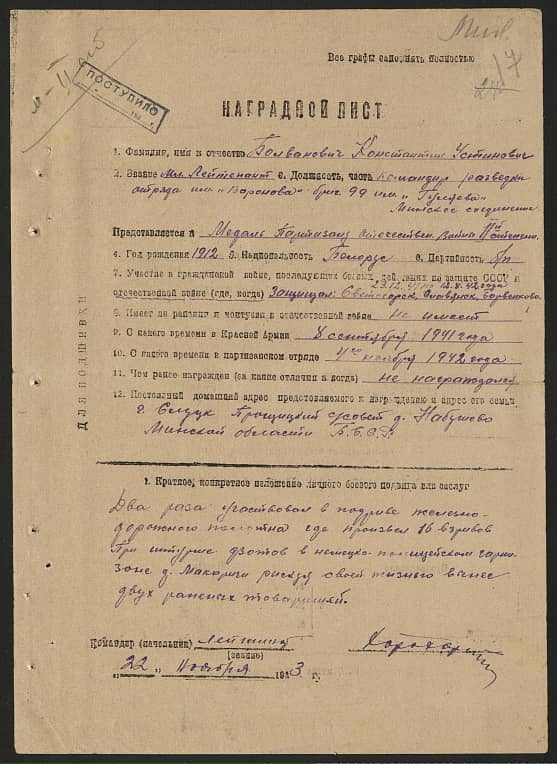 Все графы заполнять полностью
17
ПОСТУПИЛО
НАГРАДНОЙ ЛИСТ
1. Фамилия, имя и отчество Болванович Константин Устинович
2. Звание Мл. Лейтенант 3. Должность, часть командир разведки
отряда им. "Воронова" бриг. 99 им.
Минское соединение
Представляется к Медаль Партизану Отечествен. Война IIой степени
4. Год рождения 1912 5. Национальность Белорус 6. Партийность б/п
7. Участие в гражданской войне, последующих боевых действиях по защите СССР и
отечественной войне (где, когда) Защищал Славянск, Барвенково
8. Имеет ли ранения и контузии в отечественной войне не имеет
9. С какого времени в Красной Армии 8 сентября 1941 года
10. С какого времени в партизанском отряде ноября 1942 года
11. Чем ранее награжден (за какие отличия и когда) не награждался
12. Постоянный домашний адрес представляемого к награждению и адрес его семьи
г. Слуцк сусовет д. Набушево
Минской области Б.С.С.Р.
ДЛЯ ПОДШИВКИ
1. Краткое, конкретное изложение личного боевого подвига или заслуг
Два раза участвовал в подриве железно-
дорожного полотна где произвел 16 взривов
При штурме дзотов в немецко-полицейском гарни-
зоне д. Макаричи рискуя своей жизнью вынес
двух раненых товарищей.
Командир (начальник)
(звание)
"22" Ноября 1943 г.